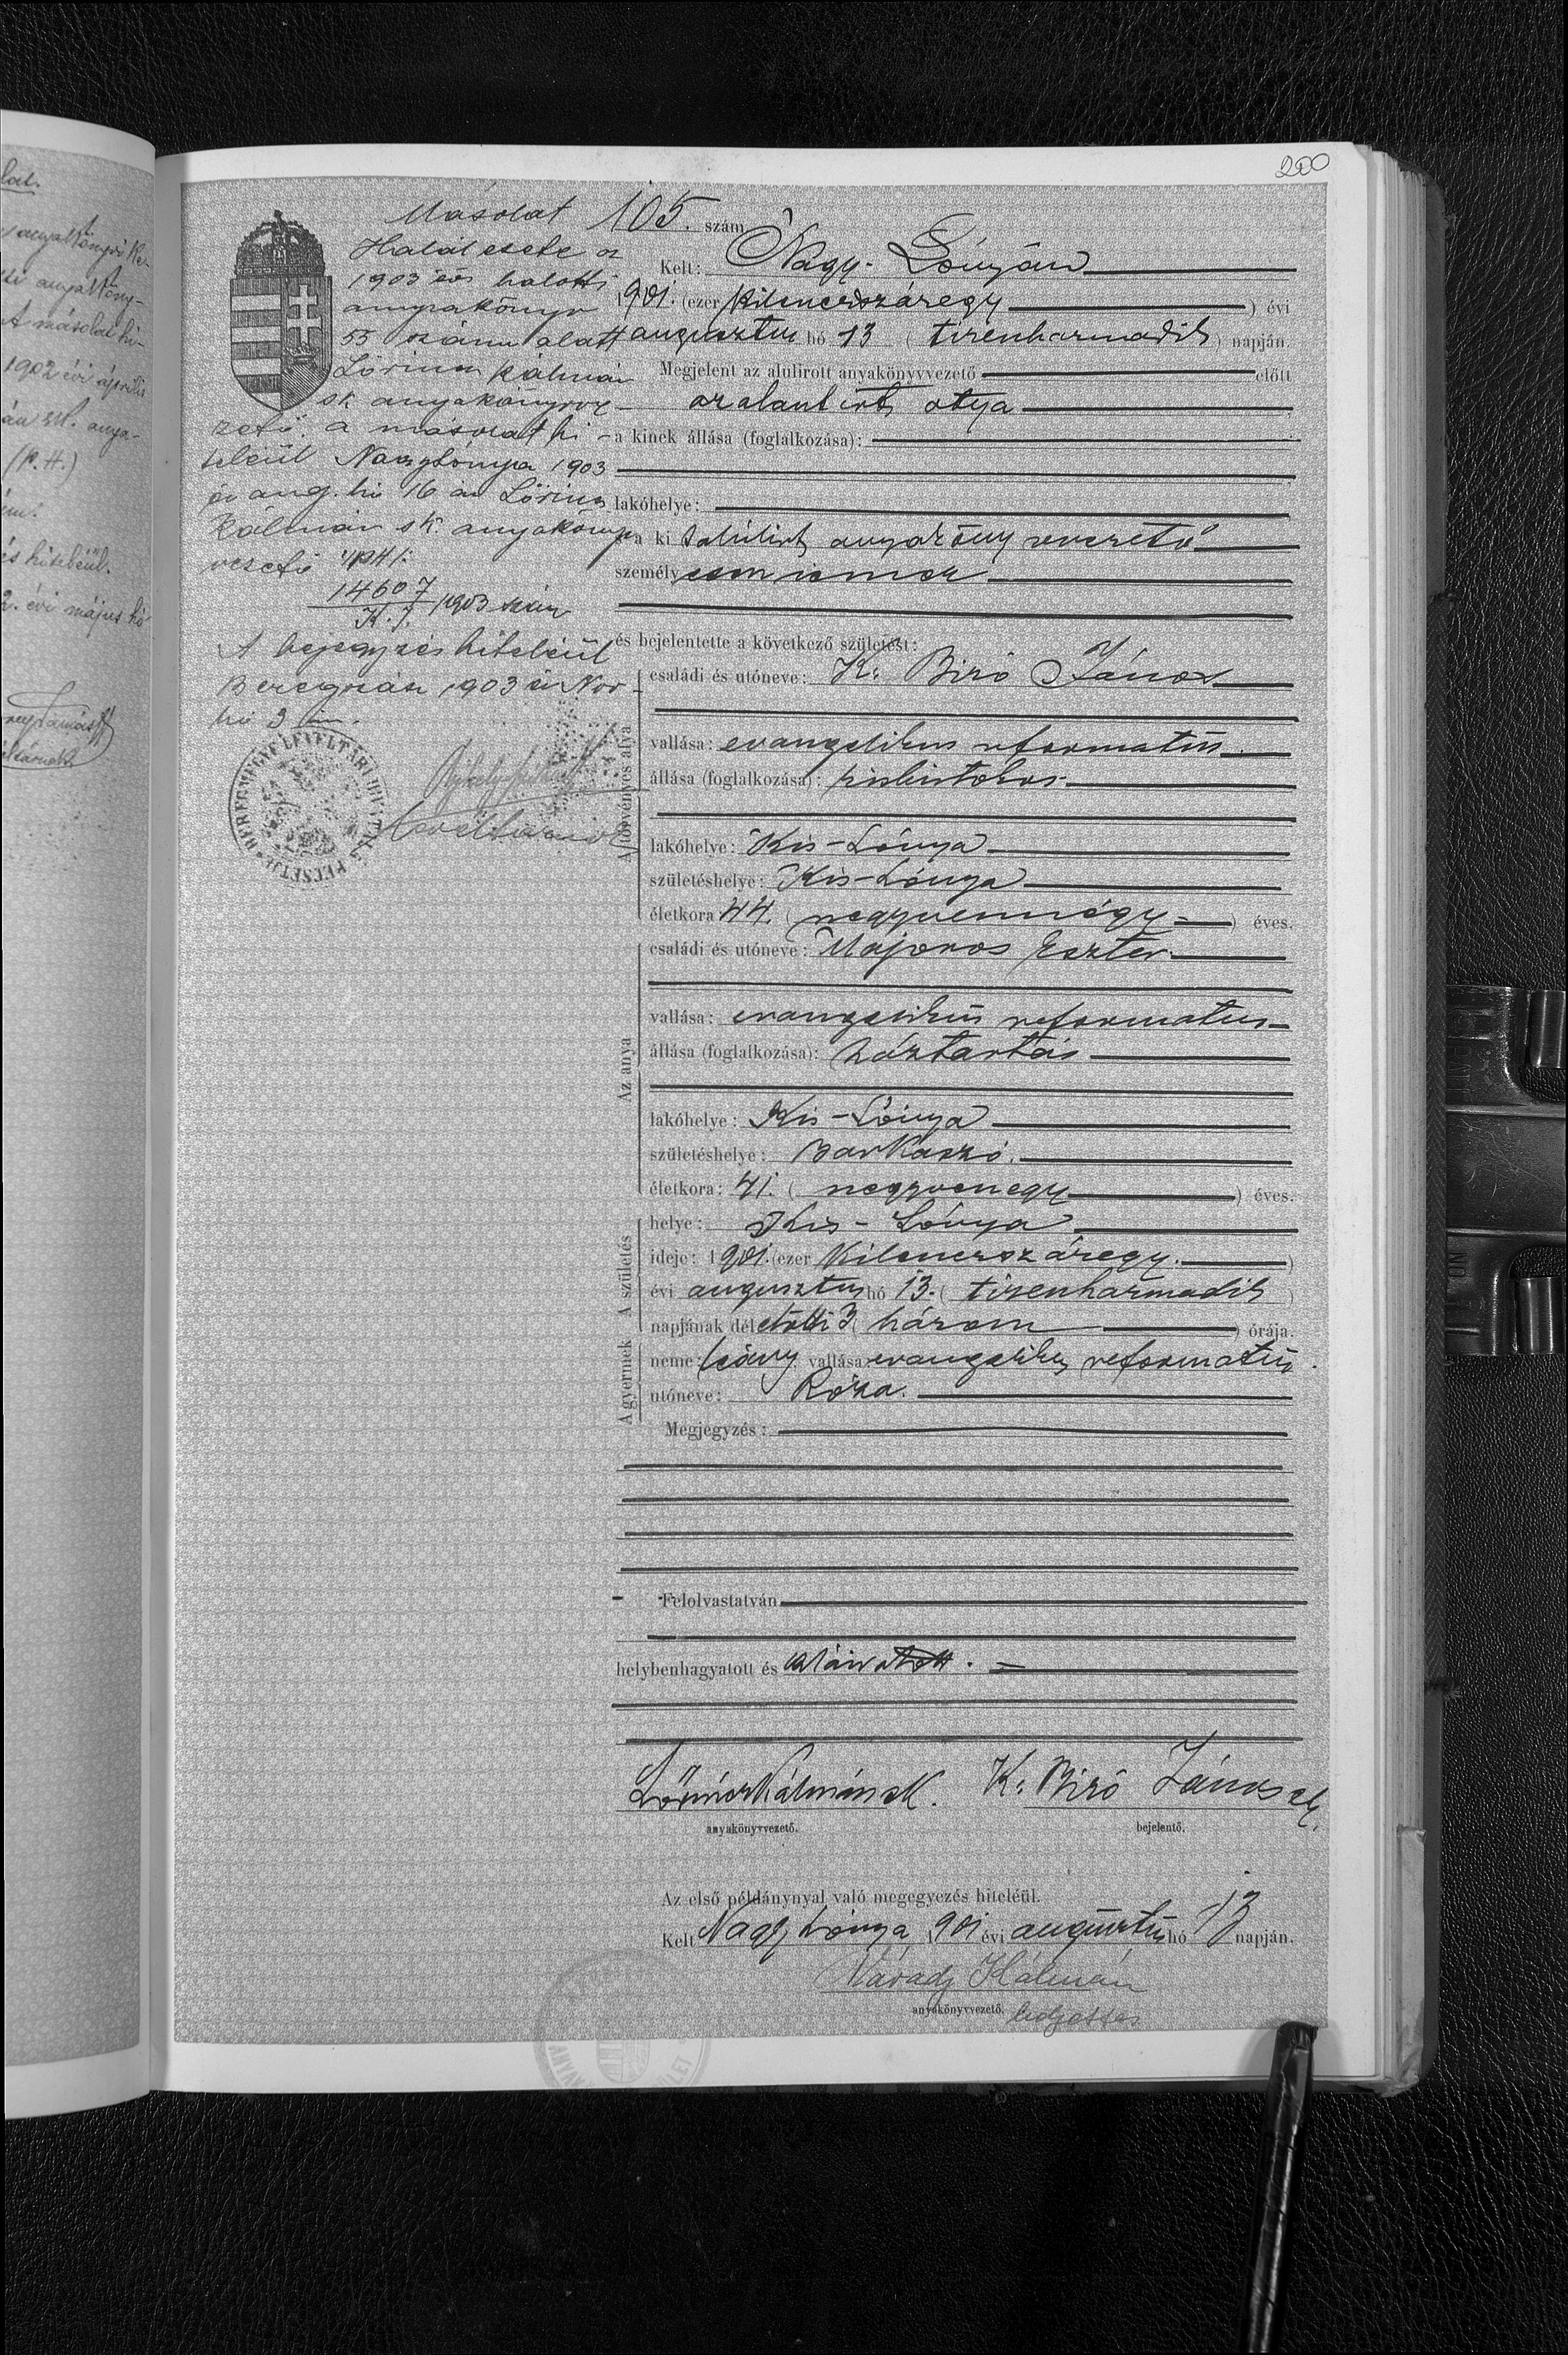 200
Másolat
105. szám
Halálesete az
1903 évi halotti
anyakönyv
55 száma alatt
Lőrincz Kálmán
sk anyakönyvve
zető. a másolat hi-
teleül Nagylónya 1903
évi aug. hó 16 án Lőrincz
Kálmán sk anyakönyv
vezető
14607
K. j. /1903 szám
A bejegyzés hiteléül
Beregszász 1903 évi Nov
hó 3 án.
levéltárnok
BEREGMEGYE LEVÉLTÁRI HIVATALI PECSÉTJE
Kelt: Nagy-Lónyán
1901. (ezer kilenczszázegy) évi
augusztus hó 13 (tizenharmadik) napján.
Megjelent az alulirott anyakönyvvezető előtt
az alant írt atya
a kinek állása (foglalkozása):
lakóhelye:
a ki
személyesen ismer
és bejelentette a következő születést:
A törvényes atya
családi és utóneve: K. Biró János
vallása: evangelikus református
állása (foglalkozása): kisbirtokos
lakóhelye: Kis-Lónya
születéshelye: Kis-Lónya
életkora 44. (negyvennégy) éves.
Az anya
családi és utóneve: Majoros Eszter
vallása: evangelikus református
állása (foglalkozása): háztartás
lakóhelye: Kis-Lónya
születéshelye: Barkaszó.
életkora: 41. (negyvenegy) éves.
A születés
helye: Kis-Lónya
ideje: 1901. (ezer kilenczszázegy.)
évi augusztus hó 13. (tizenharmadik)
napjának délelőtti 3 (három) órája.
A gyermek
neme: leány vallása: evangelikus református.
utóneve: Róza.
Megjegyzés:
Felolvastatván
helybenhagyatott és aláiratott.
Lőrincz Kálmán sk. K. Biró János sk.
anyakönyvvezető. bejelentő.
Az első példánynyal való megegyezés hiteléül.
Kelt Nagy Lónya 1901 évi augusztus hó 13 napján.
Várady Kálmán
anyakönyvvezető. helyettes